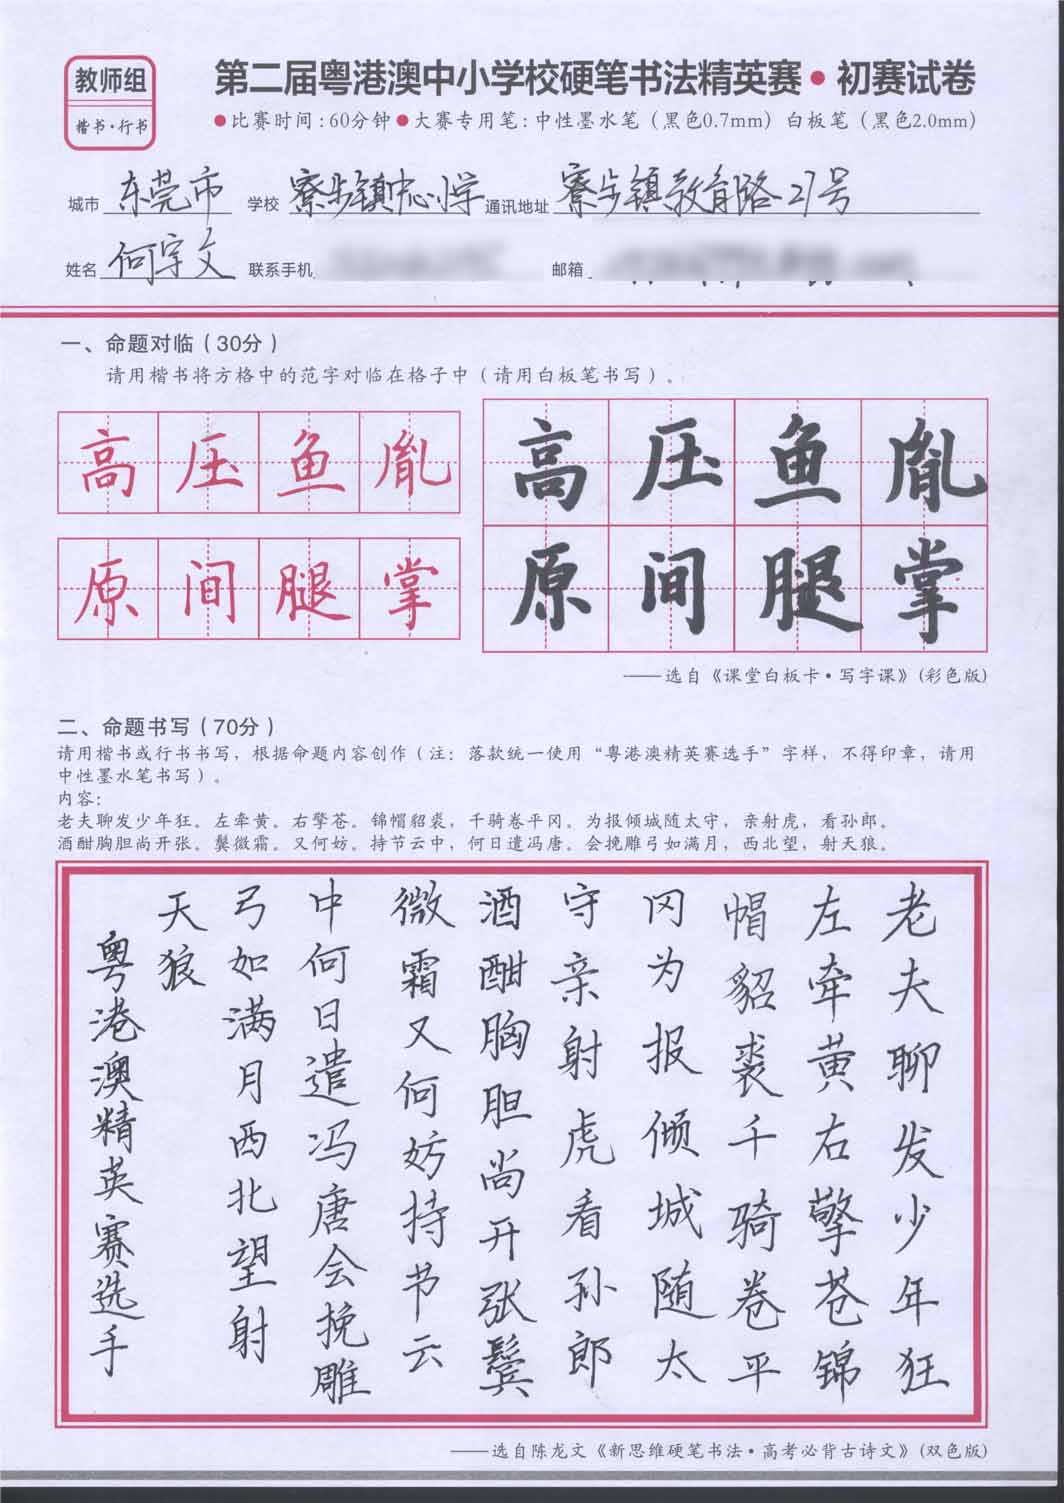 教师组
楷书·行书
第二届粤港澳中小学校硬笔书法精英赛·初赛试卷
●比赛时间:60分钟●大赛专用笔:中性墨水笔（黑色0.7mm）白板笔（黑色2.0mm）
城市 东莞市 学校 寮步镇中心小学 通讯地址 寮步镇教育路27号
姓名 何宇文 联系手机 邮箱
一、命题对临（30分）
请用楷书将方格中的范字对临在格子中（请用白板笔书写）。
高压鱼胤
原间腿掌
高压鱼胤
原间腿掌
——选自《课堂白板卡·写字课》(彩色版)
二、命题书写（70分）
请用楷书或行书书写，根据命题内容创作（注：落款统一使用“粤港澳精英赛选手”字样，不得印章，请用
中性墨水笔书写）。
内容:
老夫聊发少年狂。左牵黄。右擎苍。锦帽貂裘，千骑卷平冈。为报倾城随太守，亲射虎，看孙郎。
酒酣胸胆尚开张。鬓微霜。又何妨。持节云中，何日遣冯唐。会挽雕弓如满月，西北望，射天狼。
老夫聊发少年狂
左牵黄右擎苍锦
帽貂裘千骑卷平
冈为报倾城随太
守亲射虎看孙郎
酒酣胸胆尚开张鬓
微霜又何妨持节云
中何日遣冯唐会挽雕
弓如满月西北望射
天狼
粤港澳精英赛选手
——选自陈龙文《新思维硬笔书法·高考必背古诗文》(双色版)